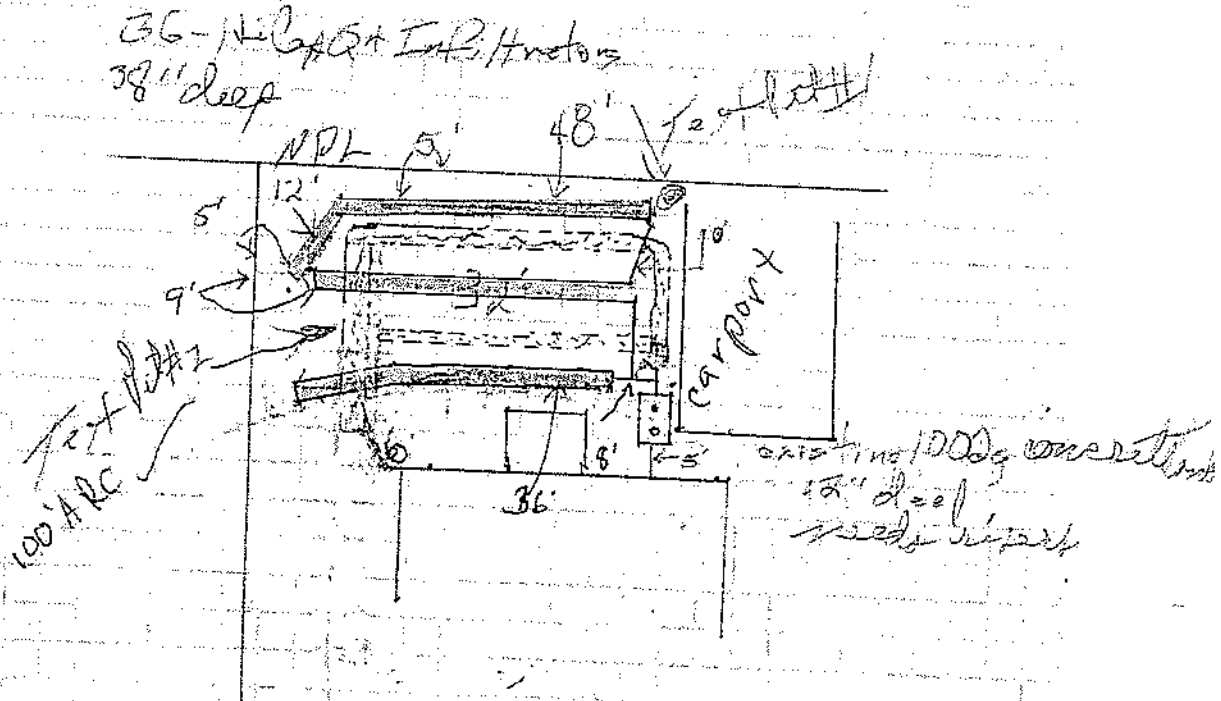 36-Hi-Cap Q4 Infiltrators
38" deep
NPL
5'
48'
12'
5'
10'
9'
32'
carport
Test Pit #2
100' ARC
8'
8'
5'
36'
existing 1000g concrete tank
12" deep
needs risers